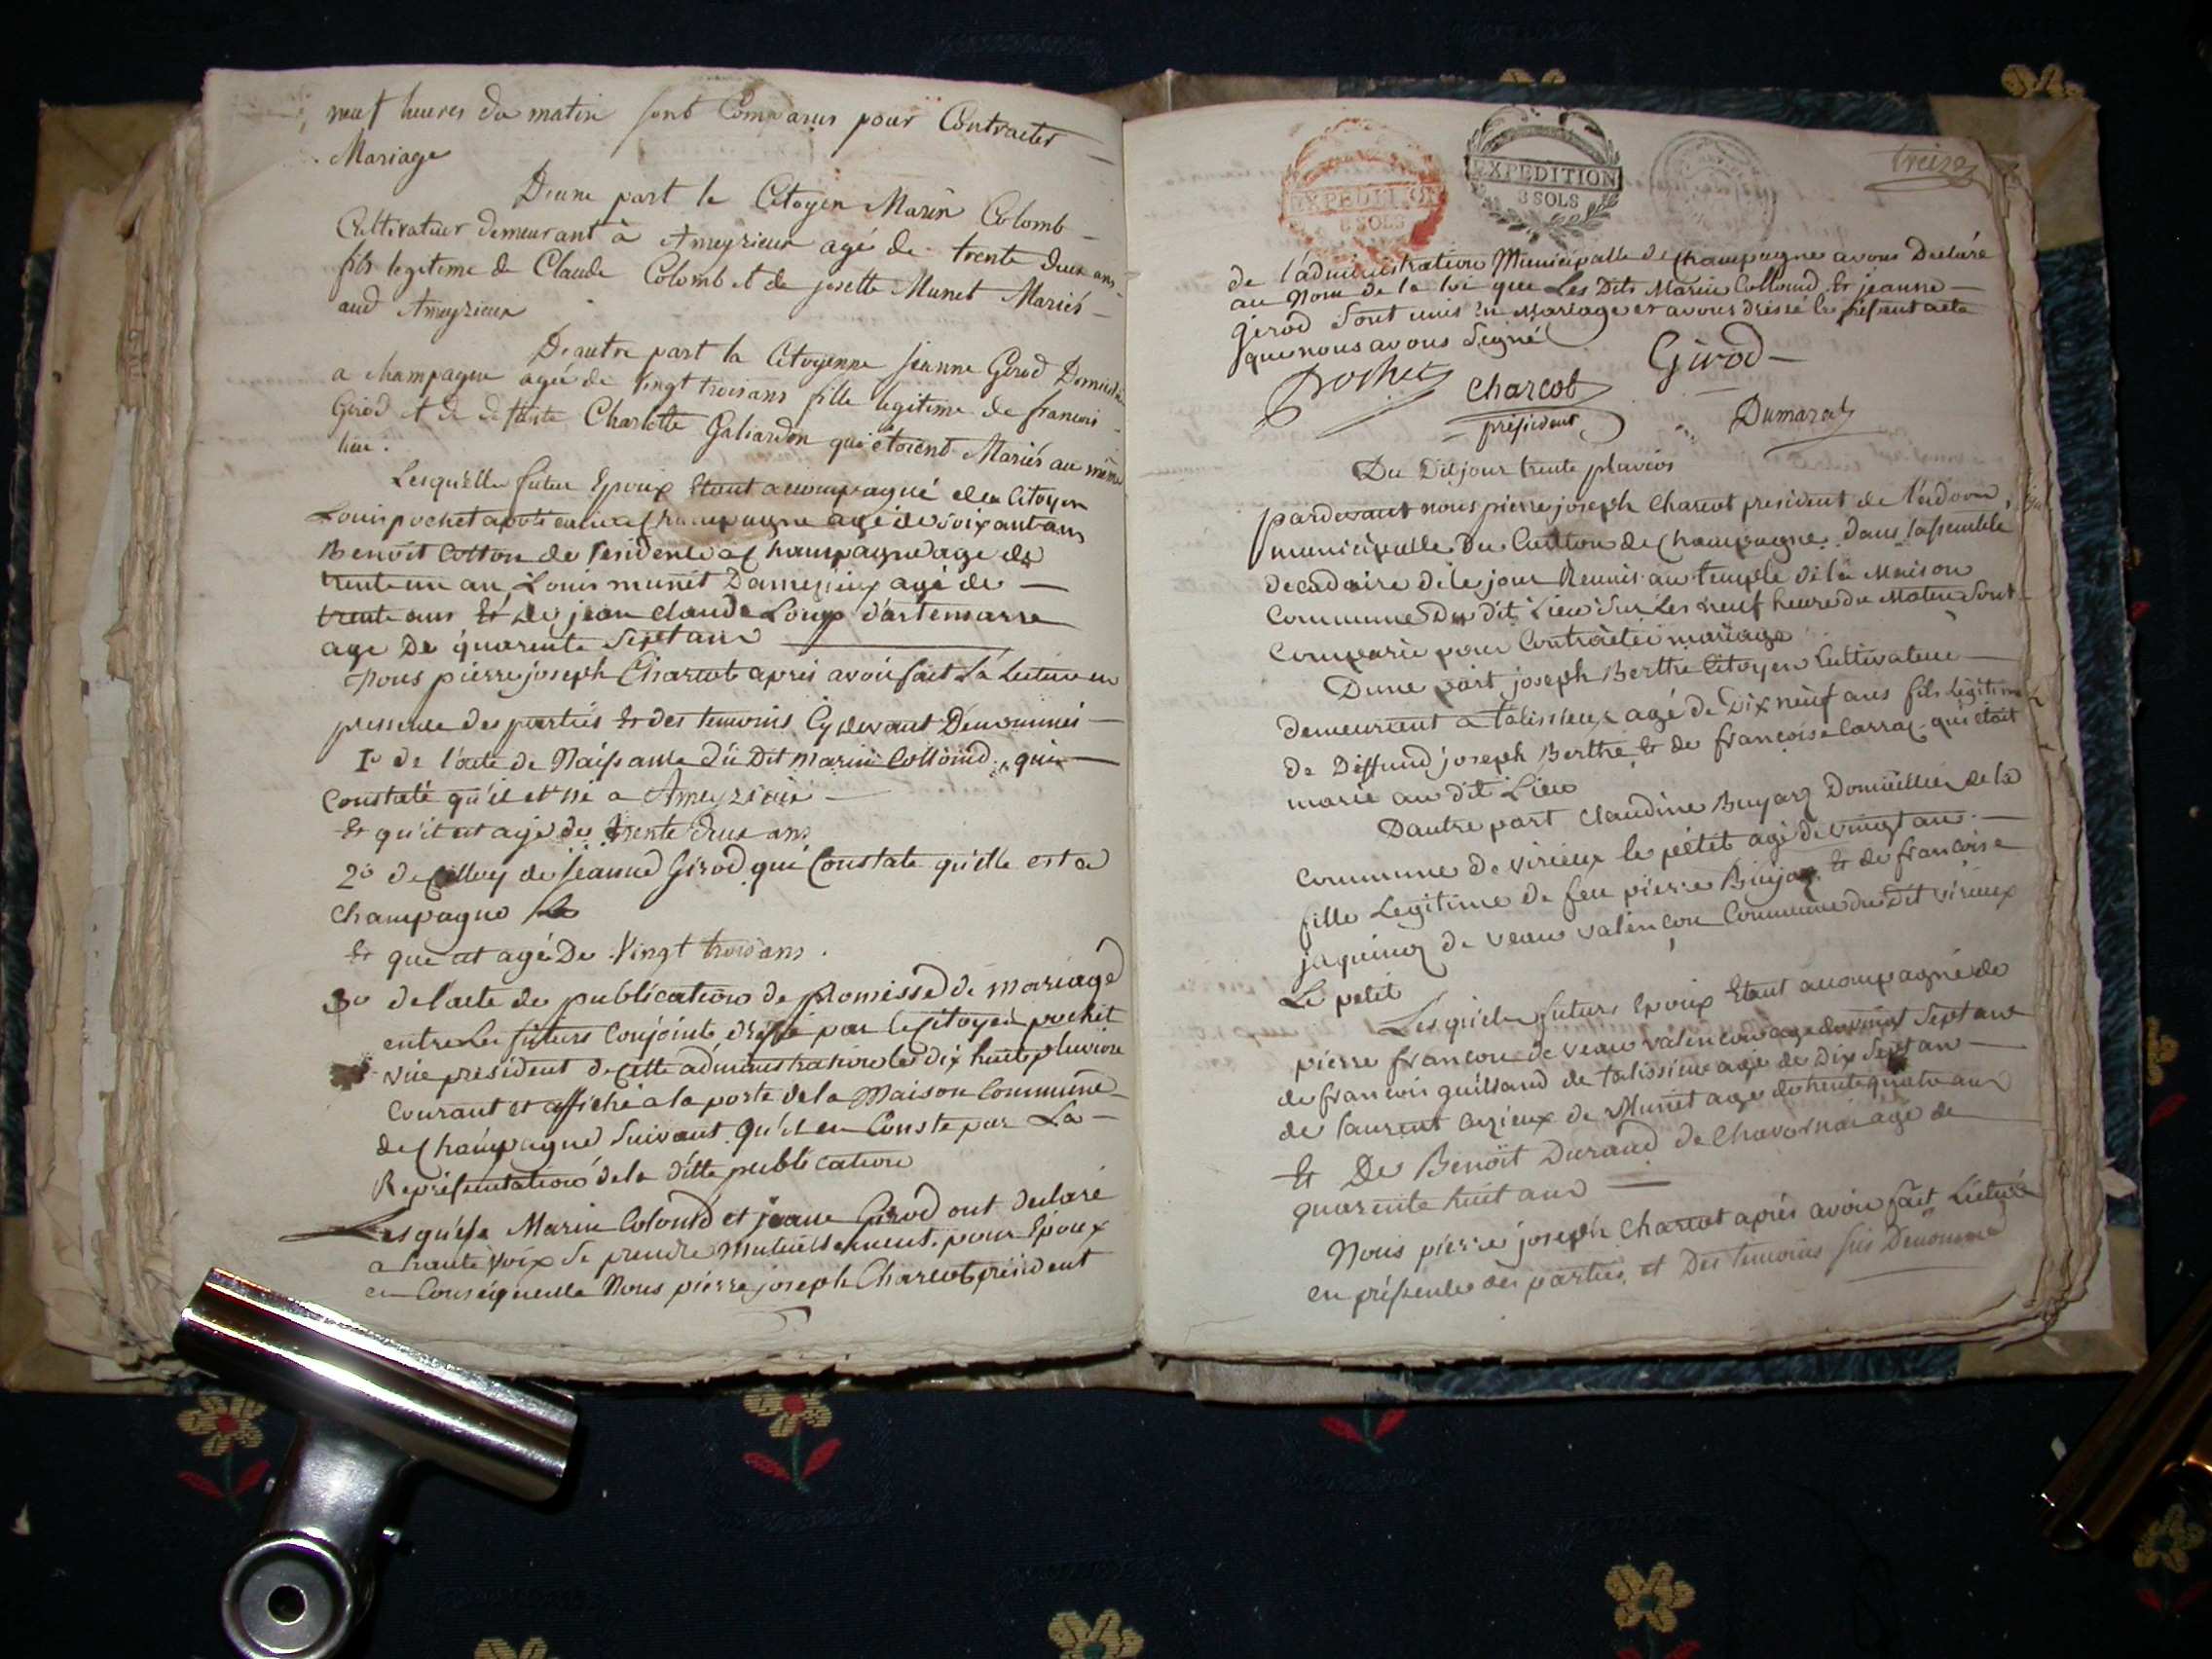 neuf heures du matin sont Comparus pour Contracter
Mariage
D'une part le Citoyen Marin Colomb
Cultivateur demeurant à Ameyzieux agé de trente deux ans
fils legitime de Claude Colomb et de josette Munet Mariés
aud Ameyzieux
D'autre part la Citoyenne jeanne Gerod
a champagne agée de vingt trois ans fille legitime de francois
Gerod et de defunte Charlotte Galiardon qui étoient Mariés au même
lieu.
Lesquelles futur Epoux Etant accompagné de Citoyen
Louis pochet a Champagne agé de soixant ans
Benoit Cotton de residence a Champagne age de
trente un an, Louis munet Dameyzieux agé de
trente ans Et de jean claude Loup d'artemarre
age De quarente Sept ans
Nous pierre joseph Charcot apres avoir fait La Lecture en
presence des parties Et des temoins Cy devant Denommés
1º de l'acte de Naissance du Dit Marin Collomd, qui
Constate qu'il et né a Ameyzieux
Et qu'il at age de trente deux ans
2º de Celluy de jeanne Girod qui Constate qu'elle est a
Champagne
Et que at agé De Vingt trois ans.
3º de l'acte de publication de promesse de mariage
entre Les futurs Conjoints dressé par le Citoyen pochet
vice president de Cette administration le dix huit pluviose
Courant et affiché a la porte de la Maison Commune
de Champagne Suivant qu'il en Conste par La
Representation de la ditte publication
Lesquels Marin Colomd et jeanne Girod ont declaré
a haute voix se prendre Mutuellement pour Epoux
en Consequence Nous pierre joseph Charcot president
treize
EXPEDITION
8 SOLS
EXPEDITION
3 SOLS
de l'administration Municipalle de Champagne avons Declaré
au Nom de la loi que Les Dits Marin Collomd Et jeanne
Gerod Sont unis En Mariage et avons dressé le présent acte
que nous avons Signé
pochet Charcot Girod
président
Dumarest
Du Dit jour trente pluvios
pardevant nous pierre joseph Charcot president de
municipalle du Cantton de Champagne Dans lassemblé
decadaire de le jour Reunis au temple de la Maison
Commune Du dit Lieu Sur Les neuf heure du Matin Sont
Comparu pour Contracter mariage
Dune part joseph Berthe Citoyen Cultivateur
demeurent a talissieux agé de Dix neuf ans fils legitime
de Deffund joseph Berthe Et de francoise Carraz qui étoit
marié au dit Lieu
Dautre part Claudine Bujarz Domicilliée de la
Commune de virieux le petit agé de vingt ans
fille Legitime de feu pierre Bujarz Et de francoise
jaquinoz de veaux valencon Commune du Dit virieux
Le petit
Lesquels futurs Epoux Etant accompagné de
pierre francon de veaux valencon age de vingt Sept ans
de francois guilland de talissieu agé de Dix Sept an
de laurent de Munet age de trente quatre ans
Et De Benoit Durand de Chavornai agé de
quarente huit ans
Nous pierre joseph Charcot après avoir fait Lecture
en présence des parties et Des temoins sus Denommé